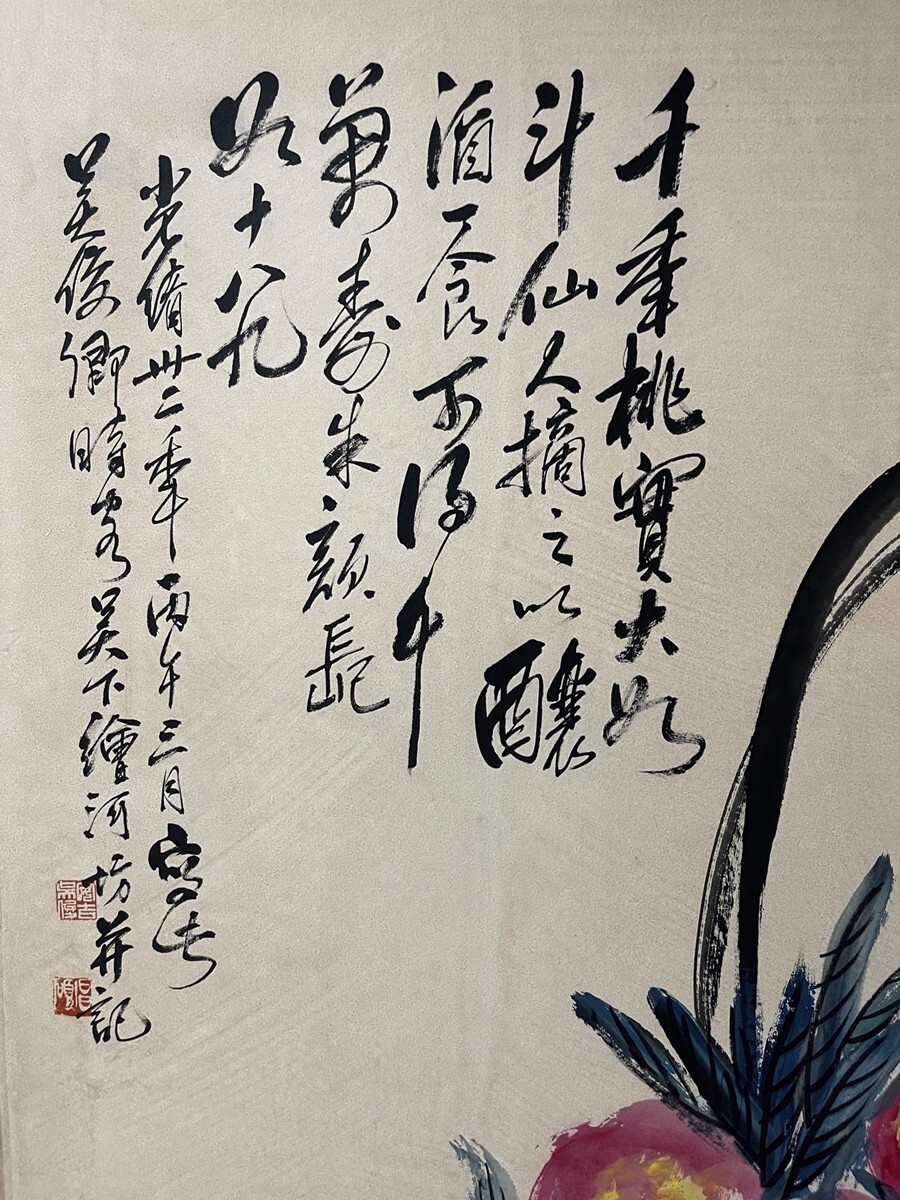 千年桃實大如
斗仙人摘之以釀
酒一食可得
萬壽朱顏長
如十八九
光緒卅二年丙午三月寫此
吳俊卿時客吳下繪河坊并記